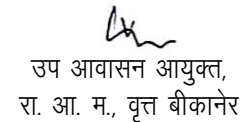 उप आवासन आयुक्त,
रा. आ. म., वृत्त बीकानेर